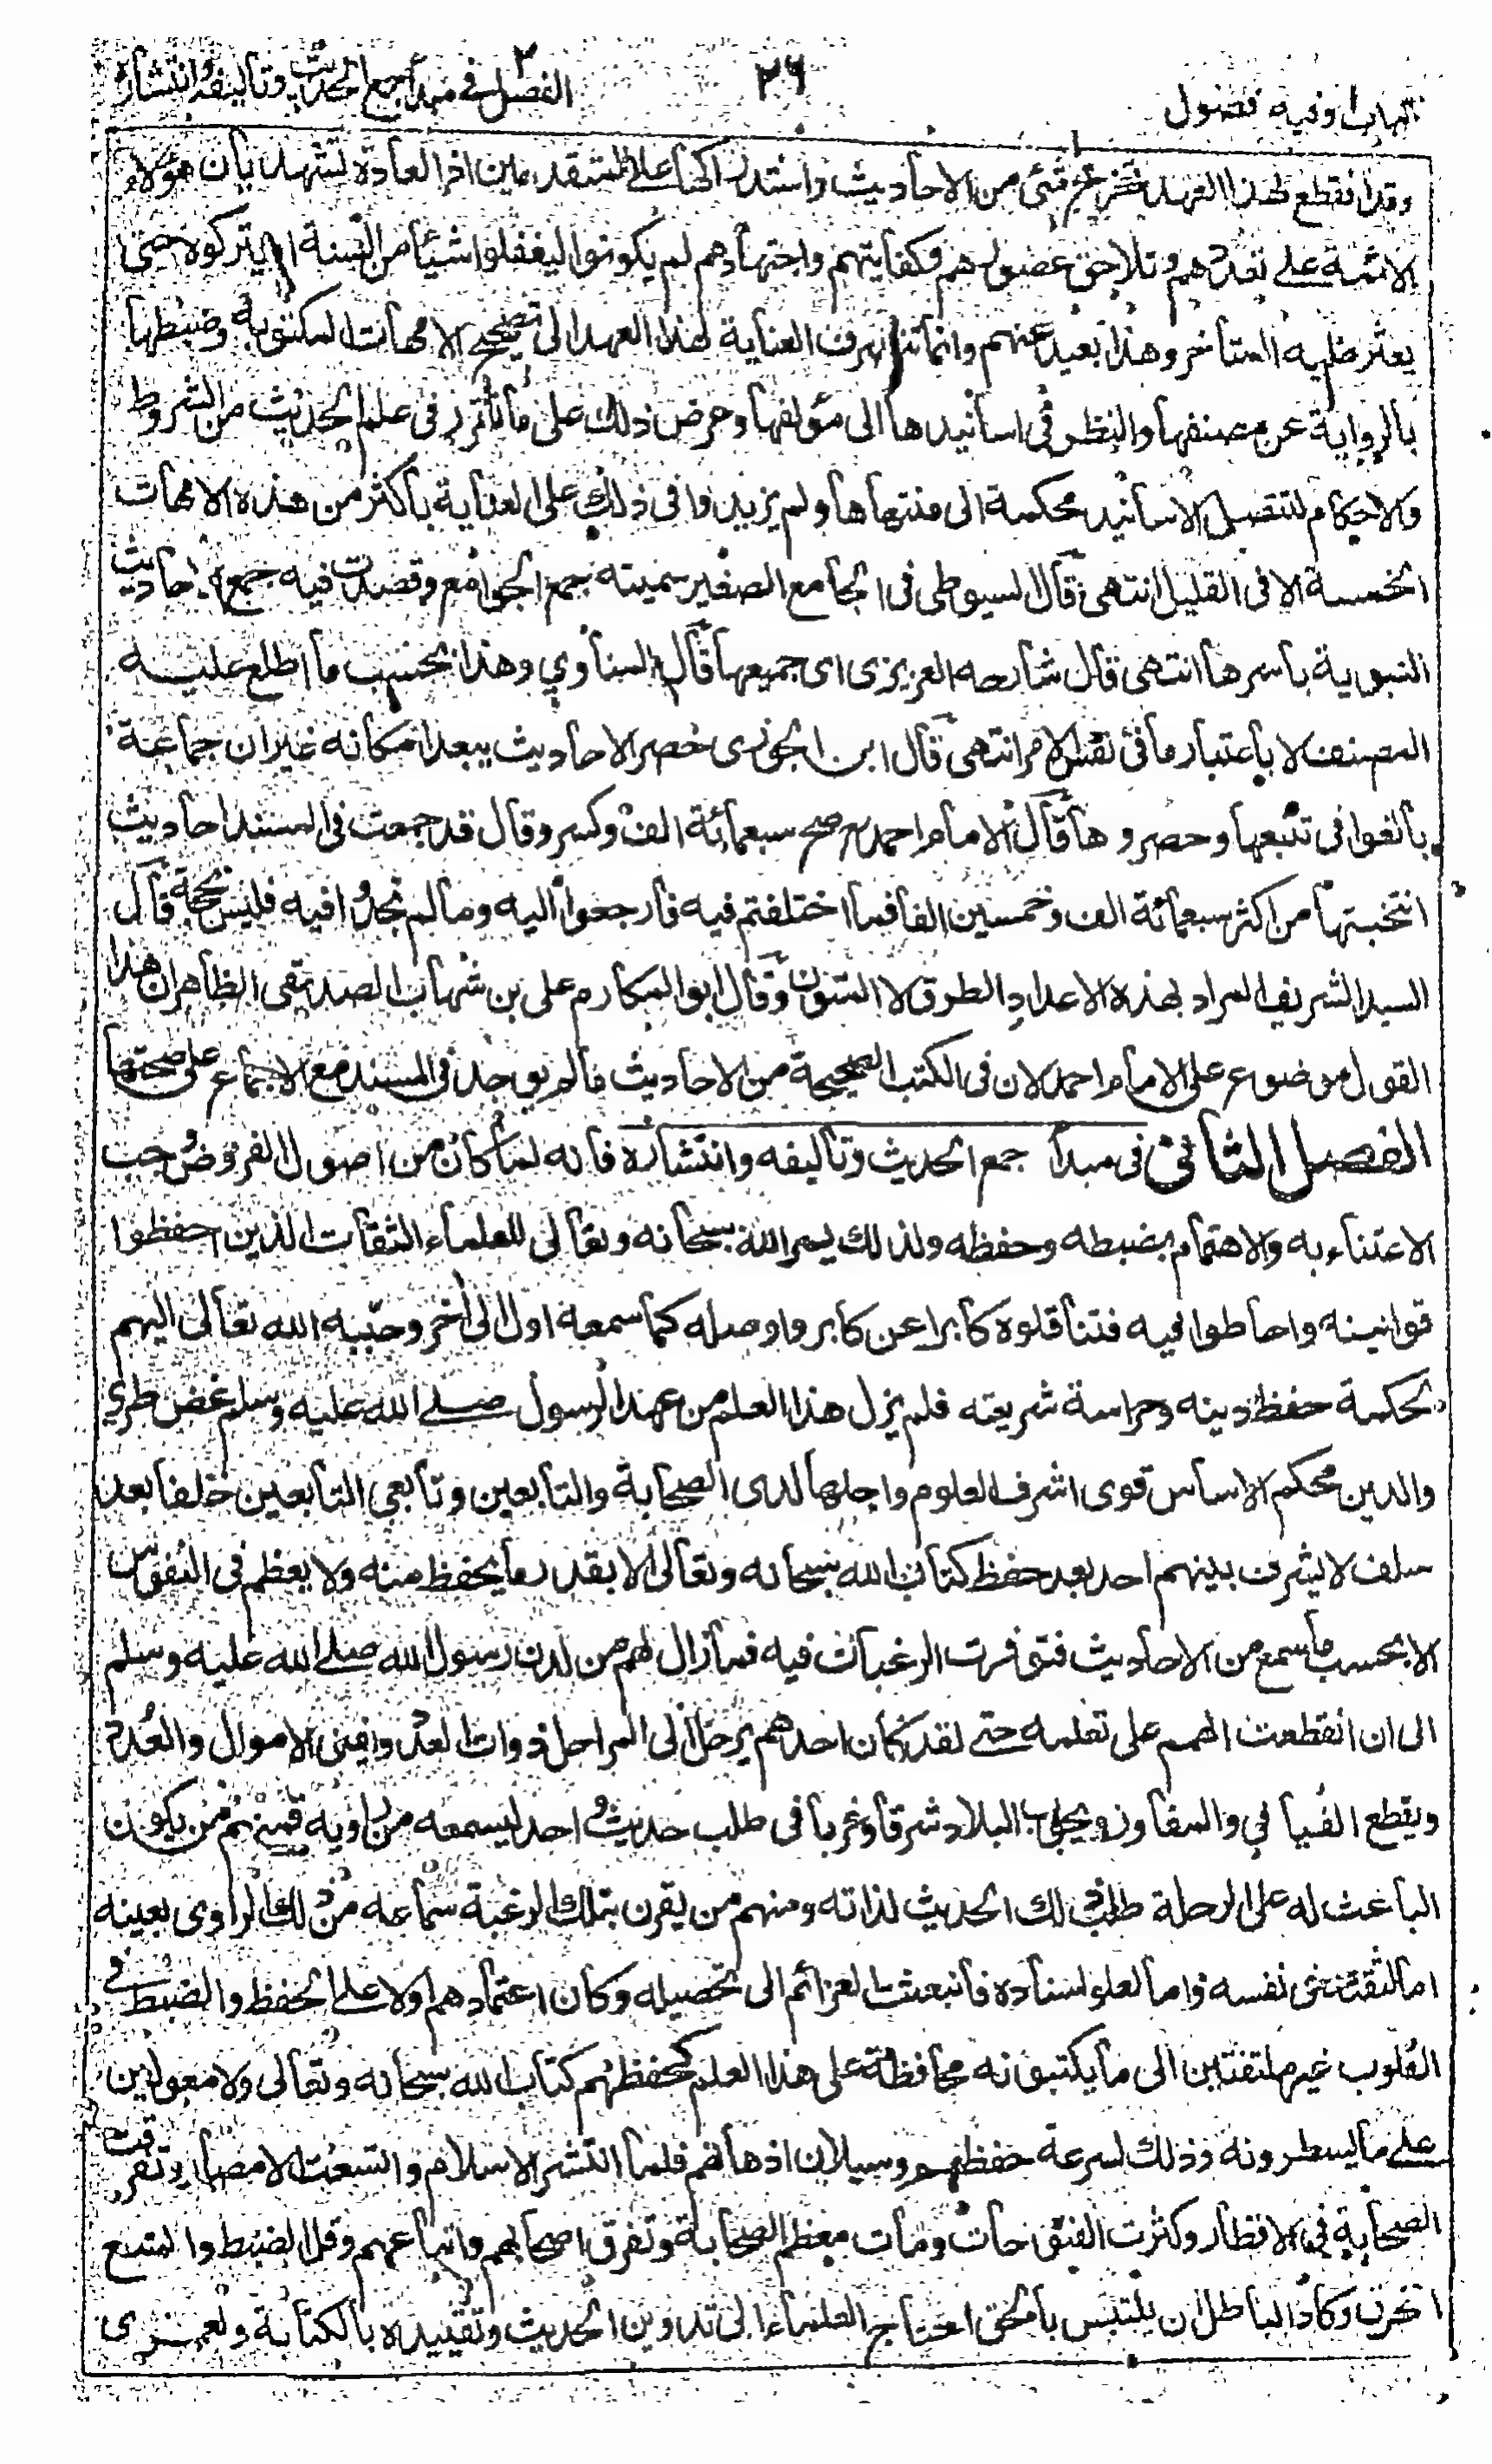 الفصل في مبدأ جمع الحديث وتأليفه وانتشاره
٢٦
وفيه فصول
وقد انقطع لهذا العهد تخريج شئ من الاحاديث واستدراكها على المتقدمين اذ العادة تشهد بان هؤلاء
الائمة على تعددهم وتلاحق عصورهم وكفايتهم واجتهادهم لم يكونوا ليغفلوا شيئا من السنة او يتركوه حتى
يعثر عليه المتأخر وهذا بعيد عنهم وانما تنصرف العناية لهذا العهد الى تصحيح الامهات المكتوبة وضبطها
بالرواية عن مصنفها والنظر في اسانيدها الى مؤلفها وعرض ذلك على ما تقرر في علم الحديث من الشروط
والاحكام لتتصل الاسانيد محكمة الى منتهاها ولم يزيدوا في ذلك على العناية بأكثر من هذه الامهات
الخمسة الا في القليل انتهى قال السيوطى فى الجامع الصغير سميته جمع الجوامع وقصدت فيه جمع الاحاديث
النبوية باسرها انتهى قال شارحه العزيزى اى جميعها قال المناوي وهذا بحسب ما اطلع عليه
المصنف لا باعتبار ما فى نفس الامر انتهى قال ابن الجوزى حصر الاحاديث يبعد امكانه غير ان جماعة
بالغوا فى تتبعها وحصروها قال الامام احمد صح سبعمائة الف وكسر وقال قد جمعت فى المسند احاديث
انتخبتها من اكثر سبعمائة الف وخمسين الفا فما اختلفتم فيه فارجعوا اليه وما لم تجدوا فيه فليس بحجة قال
السيد الشريف المراد بهذه الاعداد الطرق لا المتون وقال ابو المكارم على بن شهاب الصديقى الظاهر ان هذا
القول موضوع على الامام احمد لان فى الكتب الصحيحة من الاحاديث ما لم يوجد فى المسند مع الاجماع على صحتها
الفصل الثانى فى مبدأ جمع الحديث وتأليفه وانتشاره فانه لما كان من اصول الفروض وجب
الاعتناء به والاهتمام بضبطه وحفظه ولذلك يسر الله سبحانه وتعالى للعلماء الثقات الذين حفظوا
قوانينه واحاطوا فيه فتناقلوه كابرا عن كابر واوصله كما سمعه اول الى آخر وحببه الله تعالى اليهم
لحكمة حفظ دينه وحراسة شريعته فلم يزل هذا العلم من عهد الرسول صلى الله عليه وسلم غض طري
والدين محكم الاساس قوى اشرف العلوم واجلها لدى الصحابة والتابعين وتابعى التابعين خلفا بعد
سلف لا يشرف بينهم احد بعد حفظ كتاب الله سبحانه وتعالى الا بقدر ما يحفظ منه ولا يعظم فى النفوس
الا بحسب ما سمع من الاحاديث فتوفرت الرغبات فيه فما زال لهم من لدن رسول الله صلى الله عليه وسلم
الى ان انقطعت الهمم على تعلمه حتى لقد كان احدهم يرحل الى المراحل ذوات العدد ويفنى الاموال والعدد
ويقطع الفيافي والمفاوز ويجوب البلاد شرقا وغربا فى طلب حديث واحد ليسمعه من راويه فمنهم من يكون
الباعث له على الرحلة طلب ذلك الحديث لذاته ومنهم من يقرن بتلك الرغبة سماعه من ذلك الراوى بعينه
اما لثقته فى نفسه واما لعلو اسناده فانبعثت العزائم الى تحصيله وكان اعتمادهم اولا على الحفظ والضبط فى
القلوب غير ملتفتين الى ما يكتبونه محافظة على هذا العلم كحفظهم كتاب الله سبحانه وتعالى ولا معولين
على ما يسطرونه وذلك لسرعة حفظهم وسيلان اذهانهم فلما انتشر الاسلام واتسعت الامصار وتفرقت
الصحابة فى الاقطار وكثرت الفتوحات ومات معظم الصحابة وتفرق اصحابهم واتباعهم وقل الضبط واتسع
الخرق وكاد الباطل ان يلتبس بالحق احتاج العلماء الى تدوين الحديث وتقييده بالكتابة ولعمرى